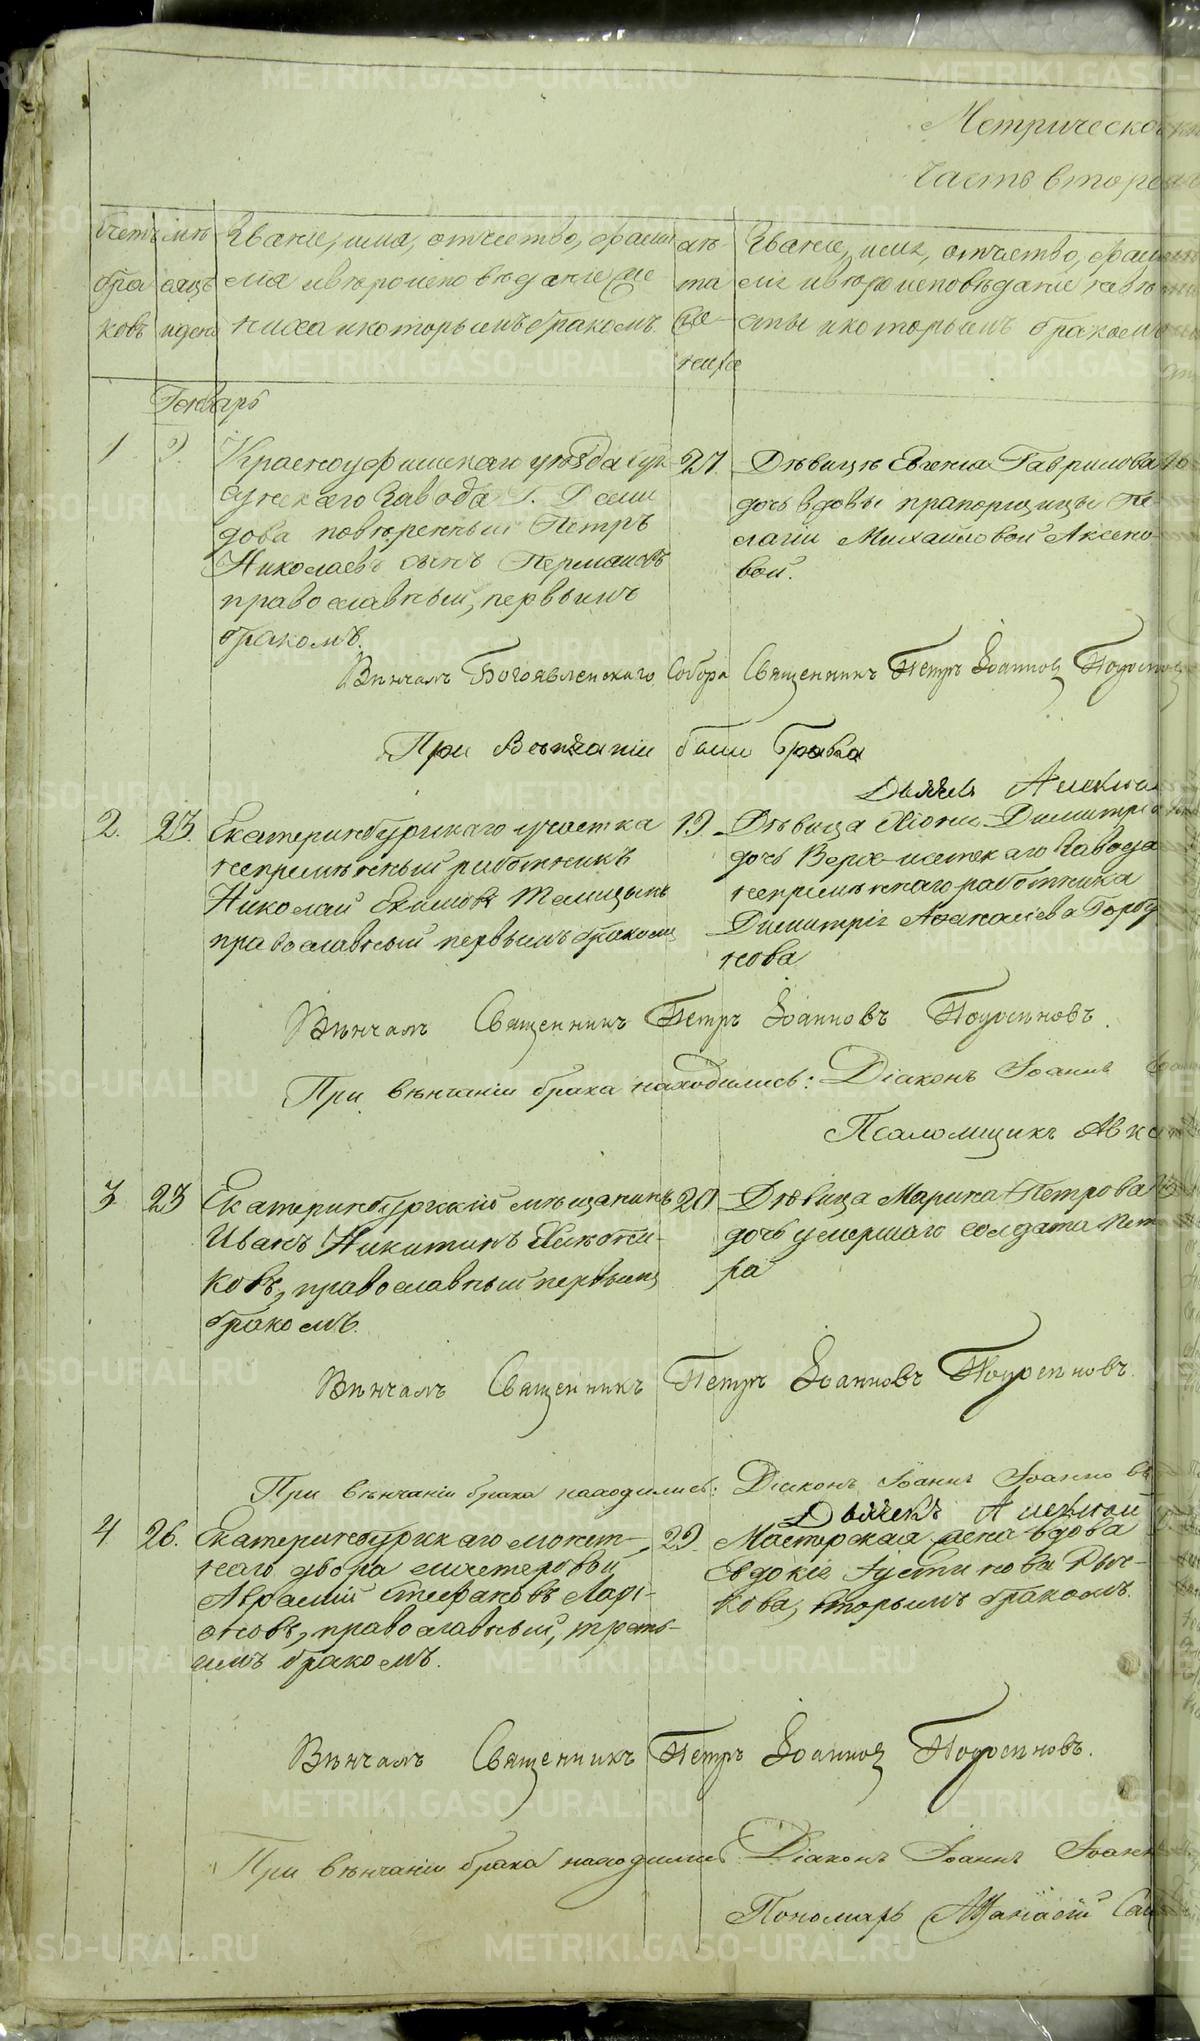 Метрической
Часть вторая
Счетъ бра ковъ
мѣ сяцъ и день
Званіе, имя, отчество, фами
лія и вѣроисповѣданіе же
ниха и которымъ бракомъ.
лѣ
та
же
ниха
Званіе, имя, отчество, фами
лія и вѣроисповѣданіе невѣ
сты и которымъ бракомъ
Генварь
1
Красноуфимскаго уѣзда
Завода Г. Деми
дова повѣренный Петръ
Николаевъ сынъ
православный, первымъ
бракомъ.
27.
Дѣвица Евгенія Гаврилова
дочь вдовы прапорщицы Пе
лагіи Михайловой Аксено
вой.
Вѣнчалъ Богоявленскаго Собора Священникъ Петръ Іоанновъ
При Вѣнчаніи были брака
Дьячекъ
2.
23.
Екатеринбургскаго участка
непремѣнный работникъ
Николай Екимовъ
православный первымъ бракомъ
19.
Дѣвица Димитріева
дочь Верхъ-исетскаго Завода
непремѣннаго работника
Димитрія Аѳанасіева Горбу
нова
Вѣнчалъ Священникъ Петръ Іоанновъ
При вѣнчаніи брака находились: Діаконъ Іоаннъ
Псаломщикъ
3
23
Екатеринбургскій мѣщанинъ
Иванъ Никитинъ
ковъ, православный первымъ
бракомъ.
20
Дѣвица Марина Петрова
дочь умершаго солдата Пет
ра
Вѣнчалъ Священникъ Петръ Іоанновъ
При вѣнчаніи брака находились: Діаконъ Іоаннъ Іоанновъ
Дьячекъ Алексѣй
4
26.
Екатеринбургскаго монет-
наго двора мастеровой
Аврамій Стефановъ Лари-
оновъ, православный, треть-
имъ бракомъ.
29.
Мастерская жена вдова
Евдокія Іустинова Рыч-
кова, вторымъ бракомъ.
Вѣнчалъ Священникъ Петръ Іоанновъ
При вѣнчаніи брака находились Діаконъ Іоаннъ
Пономарь Аѳанасій
METRIKI.GASO-URAL.RU